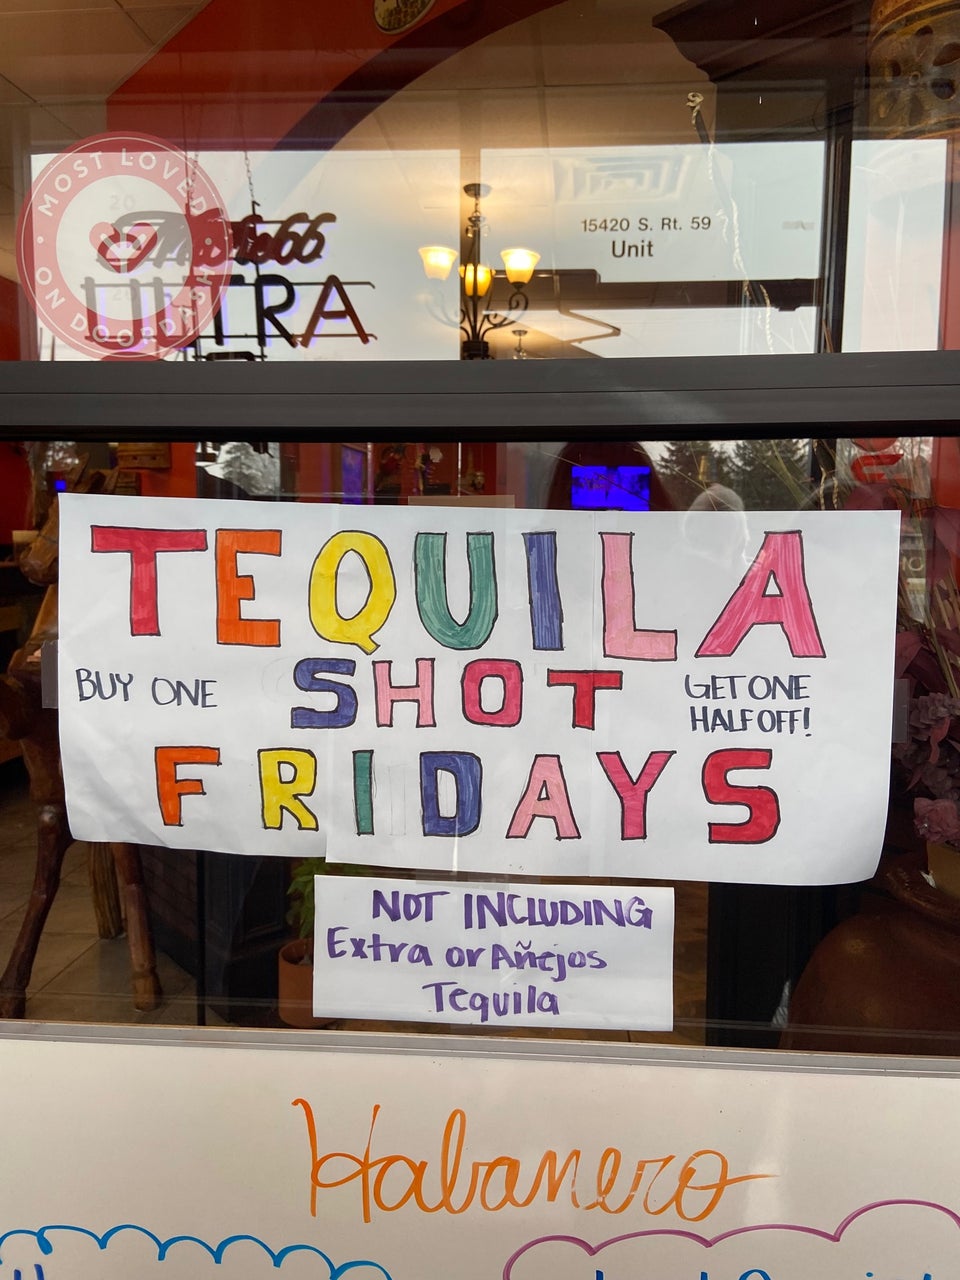 MOST LOVED
ON DOORDASH
ULTRA
15420 S. Rt. 59
Unit
TEQUILA
BUY ONE
SHOT
GET ONE
HALF OFF!
FRIDAYS
NOT INCLUDING
Extra or Añejos
Tequila
Habanero